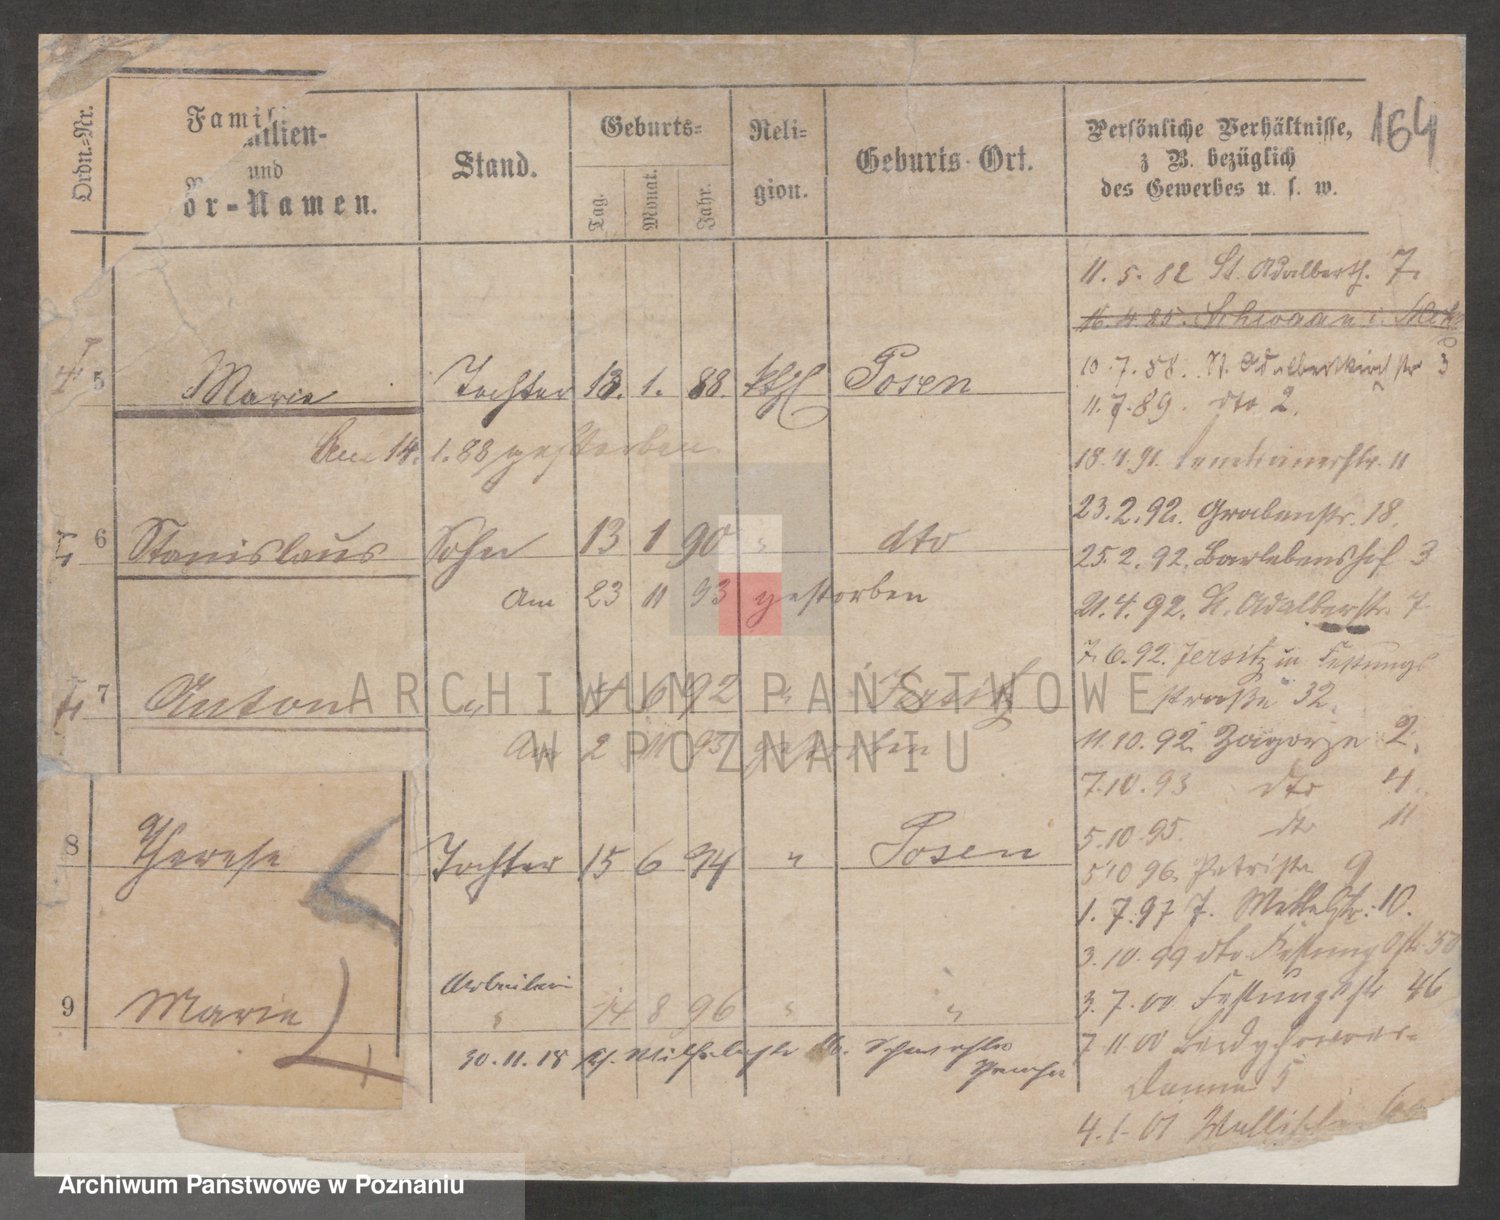 164
Ordn.-Nr.
Familien-
und
Vor-Namen.
Stand.
Geburts-
Tag.
Monat.
Jahr.
Reli-
gion.
Geburts-Ort.
Persönliche Verhältnisse,
z B. bezüglich
des Gewerbes u. s. w.
11. 5. 82 St. Adalberth. 7.
5 Marie Tochter 13. 1. 88. kthl Posen
10. 7. 88. St. Adalbertkirchstr 3
11. 7. 89. dto 2.
Am 14. 1. 88 gestorben.
23. 2. 92. Grabenstr. 18.
6 Stanislaus Sohn 13 1 90 " dto
25. 2. 92. Barlebenshof 3
Am 23 11 93 gestorben
21. 4. 92. St. Adalbertstr. 7
7. 6. 92. Jersitz in Festungs
straße 32.
7 Anton " 4 6 92 " Jersitz
11. 10. 92. Zagorze 2.
Am 2 11 93 gestorben
7. 10. 93 dto 4.
5. 10. 95. dto 11
8 Therese Tochter 15 6 94 " Posen
5 10 96. Petristr. 9
1. 7. 97 J. Mittelstr. 10.
3. 10. 99 dto Festungsstr.
Arbeiterin
9 Marie " 14 8 96 " "
3. 7. 00 Festungsstr 46
30. 11. 18
7 11. 00 Berdychowoer-
Damm 5
4. 1. 01 Wallischei
ARCHIWUM PAŃSTWOWE
W POZNANIU
Archiwum Państwowe w Poznaniu